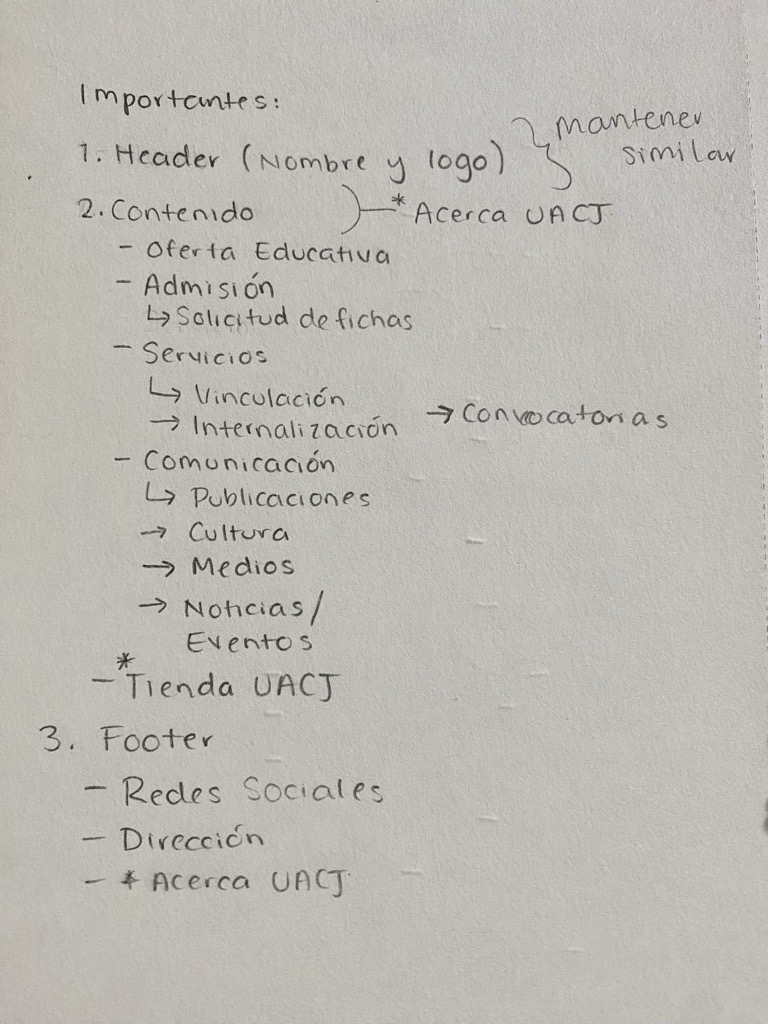 Importantes:
1. Header (Nombre y logo) } mantener similar
2. Contenido )—* Acerca UACJ
- Oferta Educativa
- Admisión
↳ Solicitud de fichas
- Servicios
↳ Vinculación
→ Internalización → Convocatorias
- Comunicación
↳ Publicaciones
→ Cultura
→ Medios
→ Noticias/
Eventos
- *Tienda UACJ
3. Footer
- Redes Sociales
- Dirección
- * Acerca UACJ